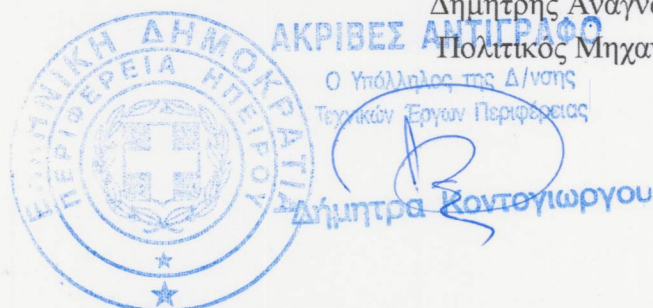 Δημήτρης
Πολιτικός
ΑΚΡΙΒΕΣ ΑΝΤΙΓΡΑΦΟ
Ο Υπάλληλος της Δ/νσης
Τεχνικών Έργων Περιφέρειας
Δήμητρα Κοντογιωργου
ΕΛΛΗΝΙΚΗ ΔΗΜΟΚΡΑΤΙΑ
ΠΕΡΙΦΕΡΕΙΑ ΗΠΕΙΡΟΥ